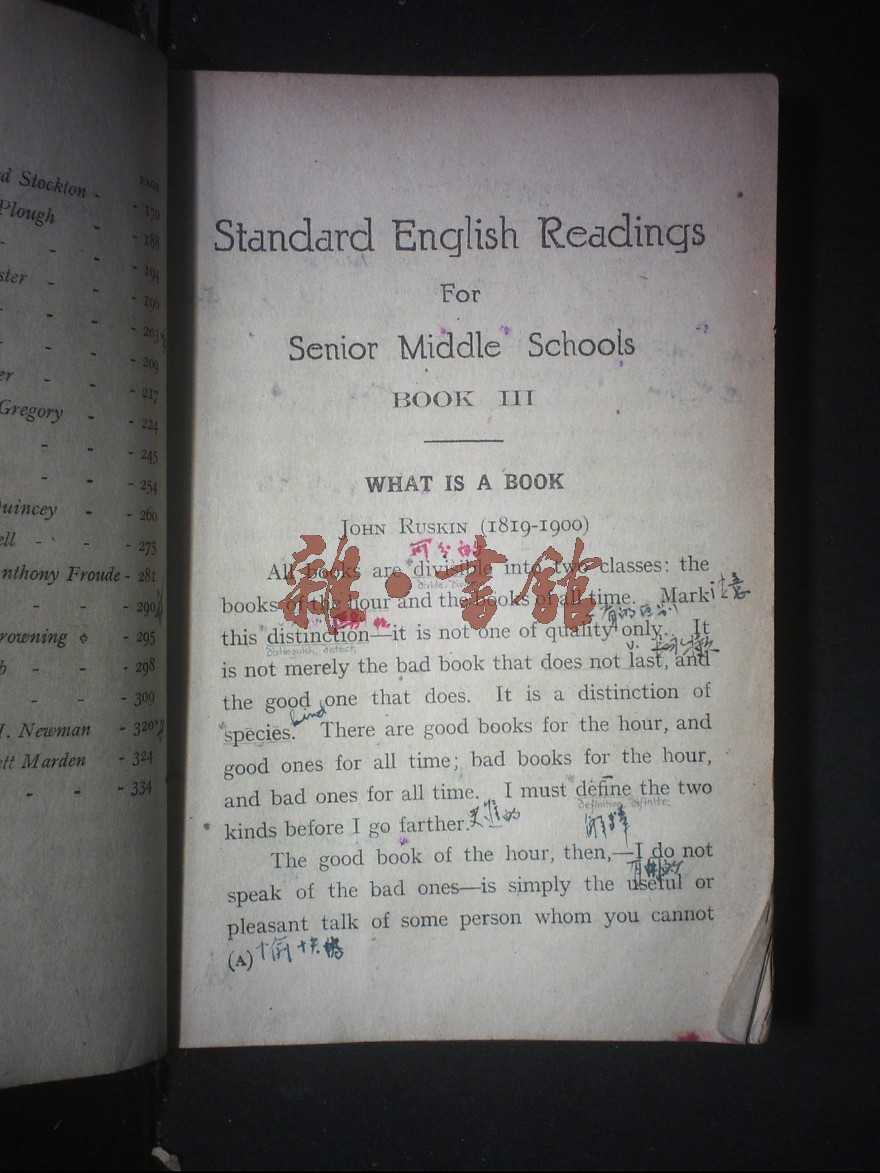 d Stockton - - 179
Plough - - 188
- - 194
ster - - - 196
- - - 203
- - - 209
er - - - 217
Gregory - - 224
- - - 245
- - - 254
Quincey - - 260
ell - - - 275
nthony Froude - 281
- - - 290
rowning - 295
b - - - 298
- - - 309
H. Newman - 320
ett Marden - 324
- - - 334
PAGE
Standard English Readings
For
Senior Middle Schools
BOOK III
WHAT IS A BOOK
JOHN RUSKIN (1819-1900)
可分的
All books are divisible into two classes: the
divide,
books of the hour and the books of all time. Mark 注意
this distinction—it is not one of quality only. It
distinguish, distinct,
is not merely the bad book that does not last, and
the good one that does. It is a distinction of
kind
species. There are good books for the hour, and
good ones for all time; bad books for the hour,
and bad ones for all time. I must define the two
definition, definite,
kinds before I go farther.
解釋
The good book of the hour, then,—I do not
speak of the bad ones—is simply the useful or
pleasant talk of some person whom you cannot
(A)
雜·書館